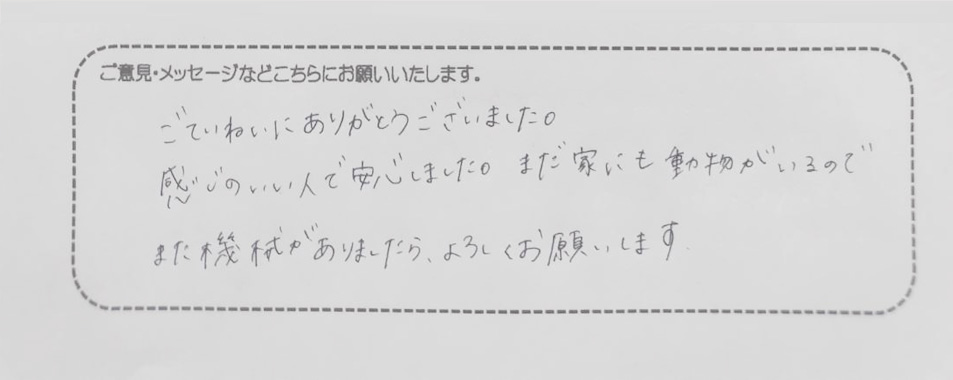 ご意見・メッセージなどこちらにお願いいたします。
ごていねいにありがとうございました。
感じのいい人で安心しました。まだ家にも動物がいるので
また機械がありましたら、よろしくお願いします